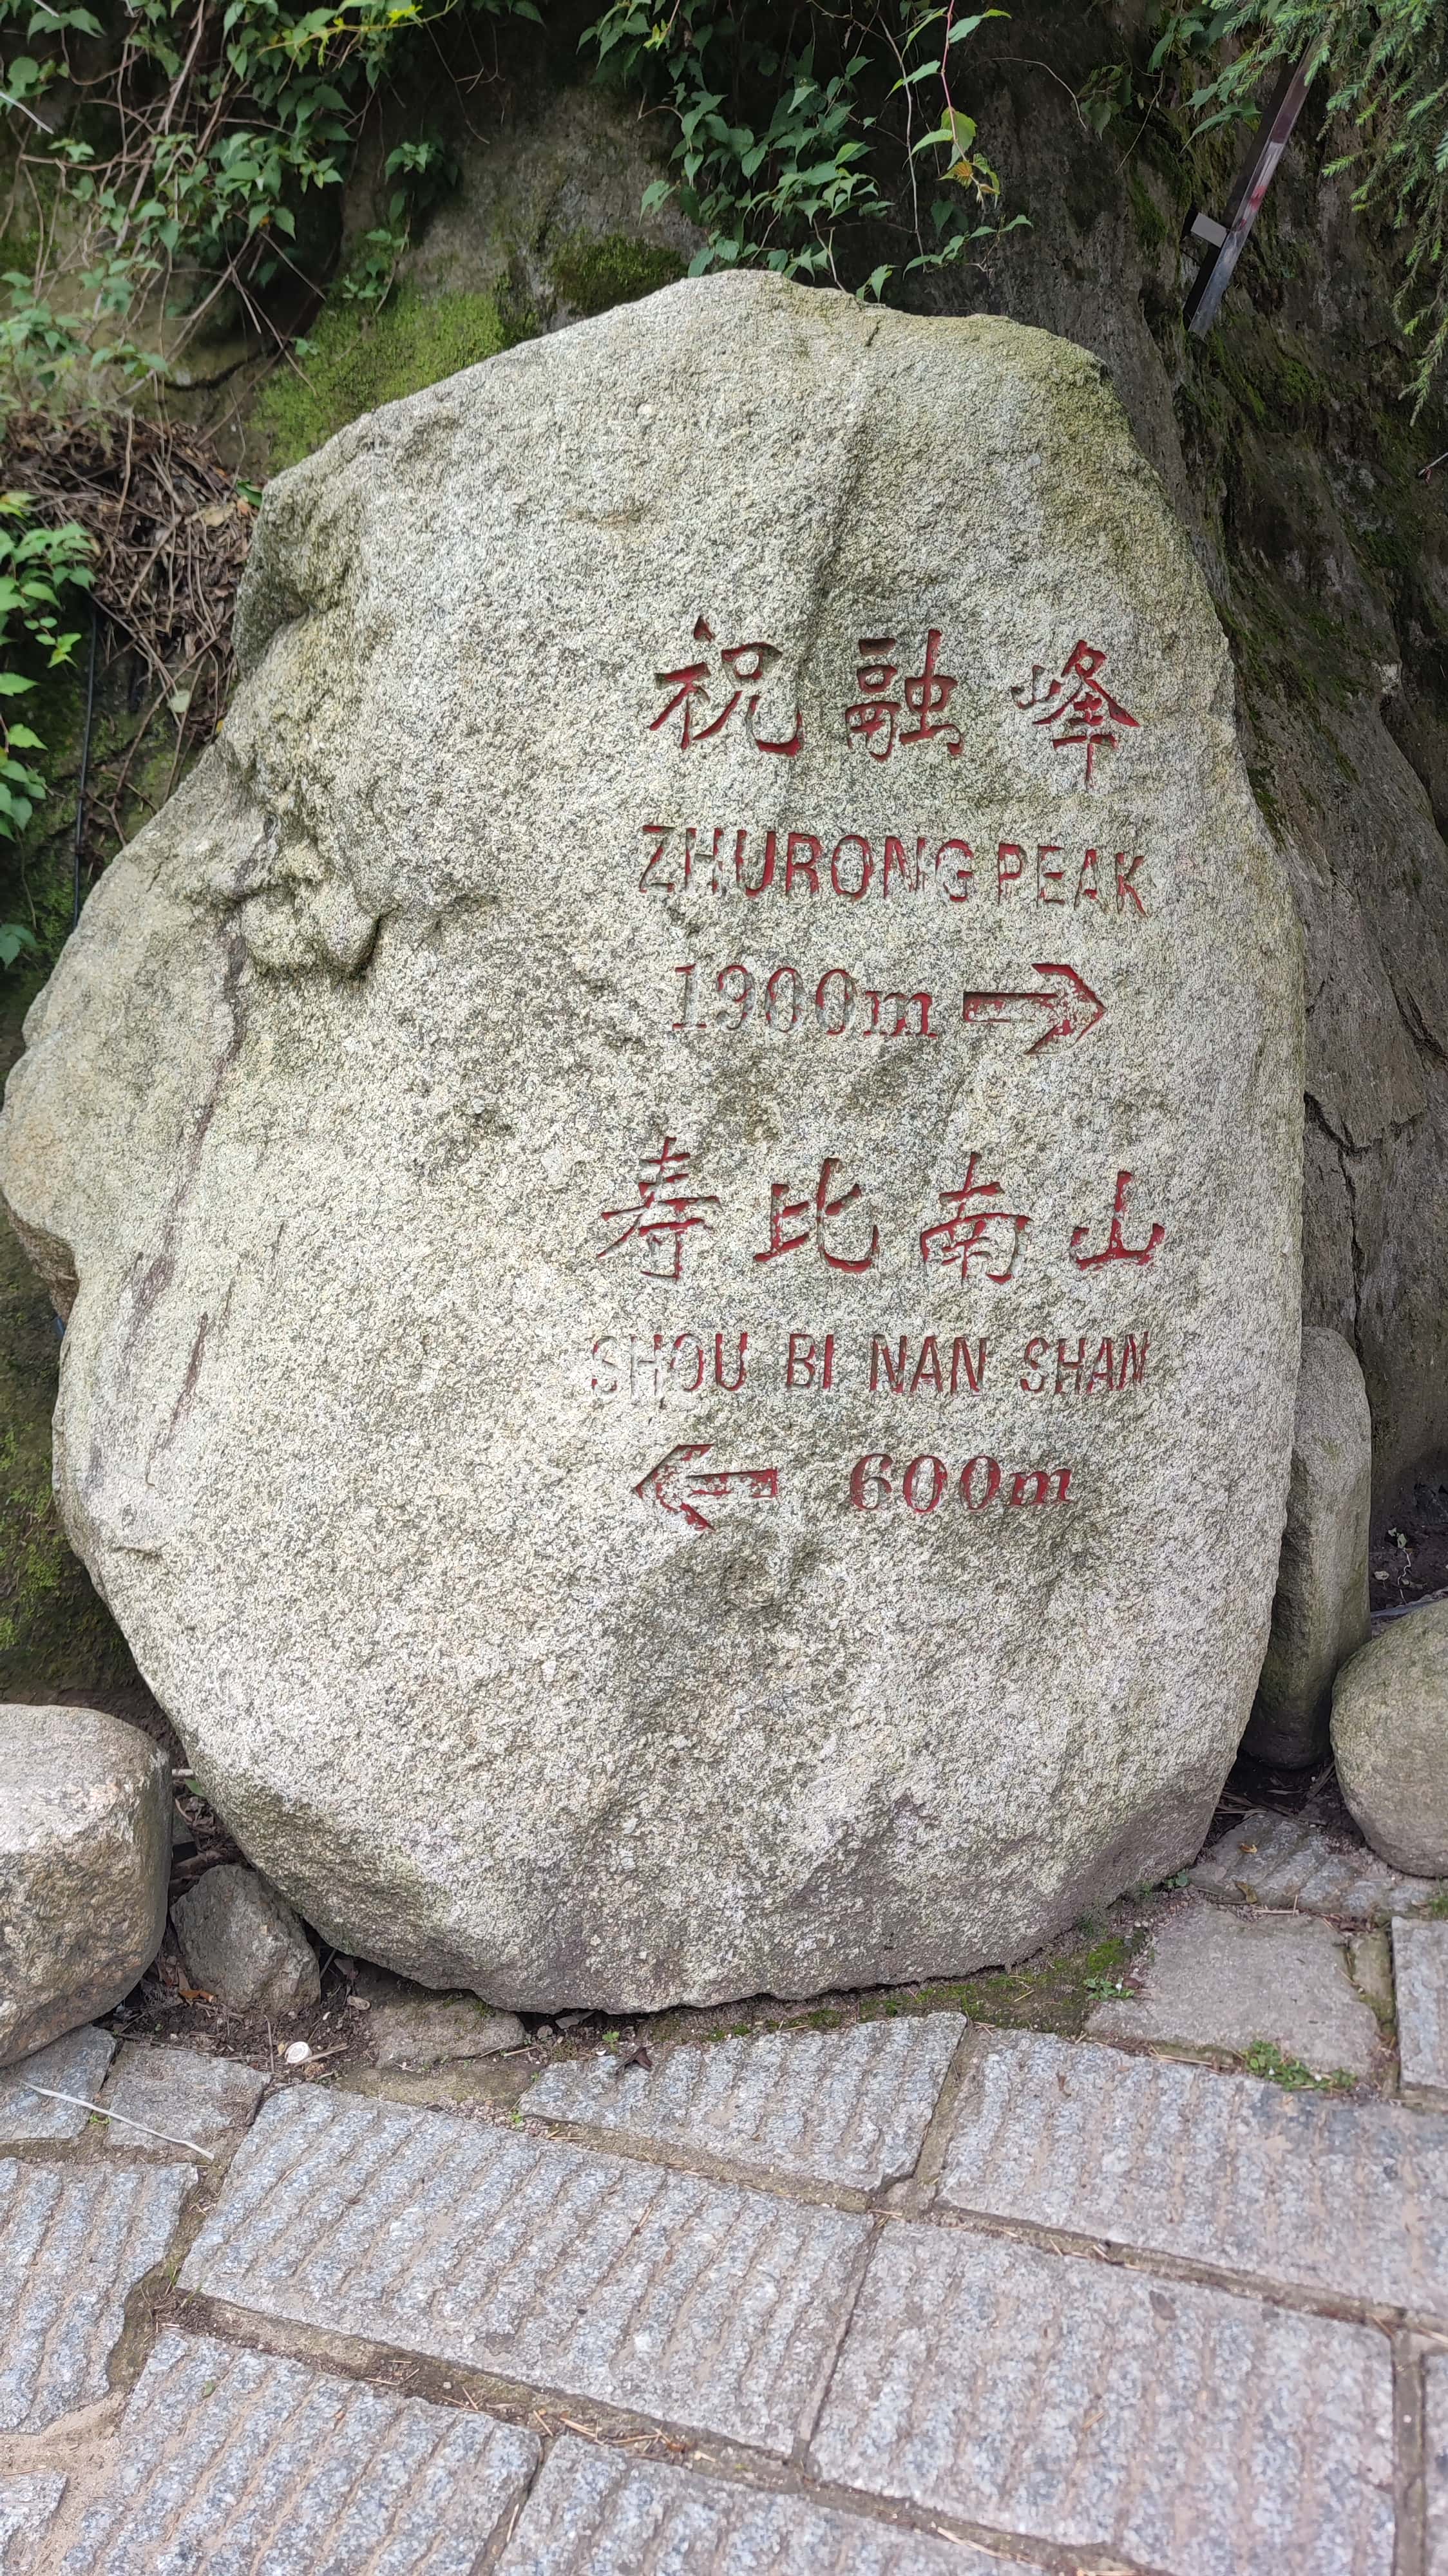 祝融峰
ZHURONG PEAK
1900m →
寿比南山
SHOU BI NAN SHAN
← 600m